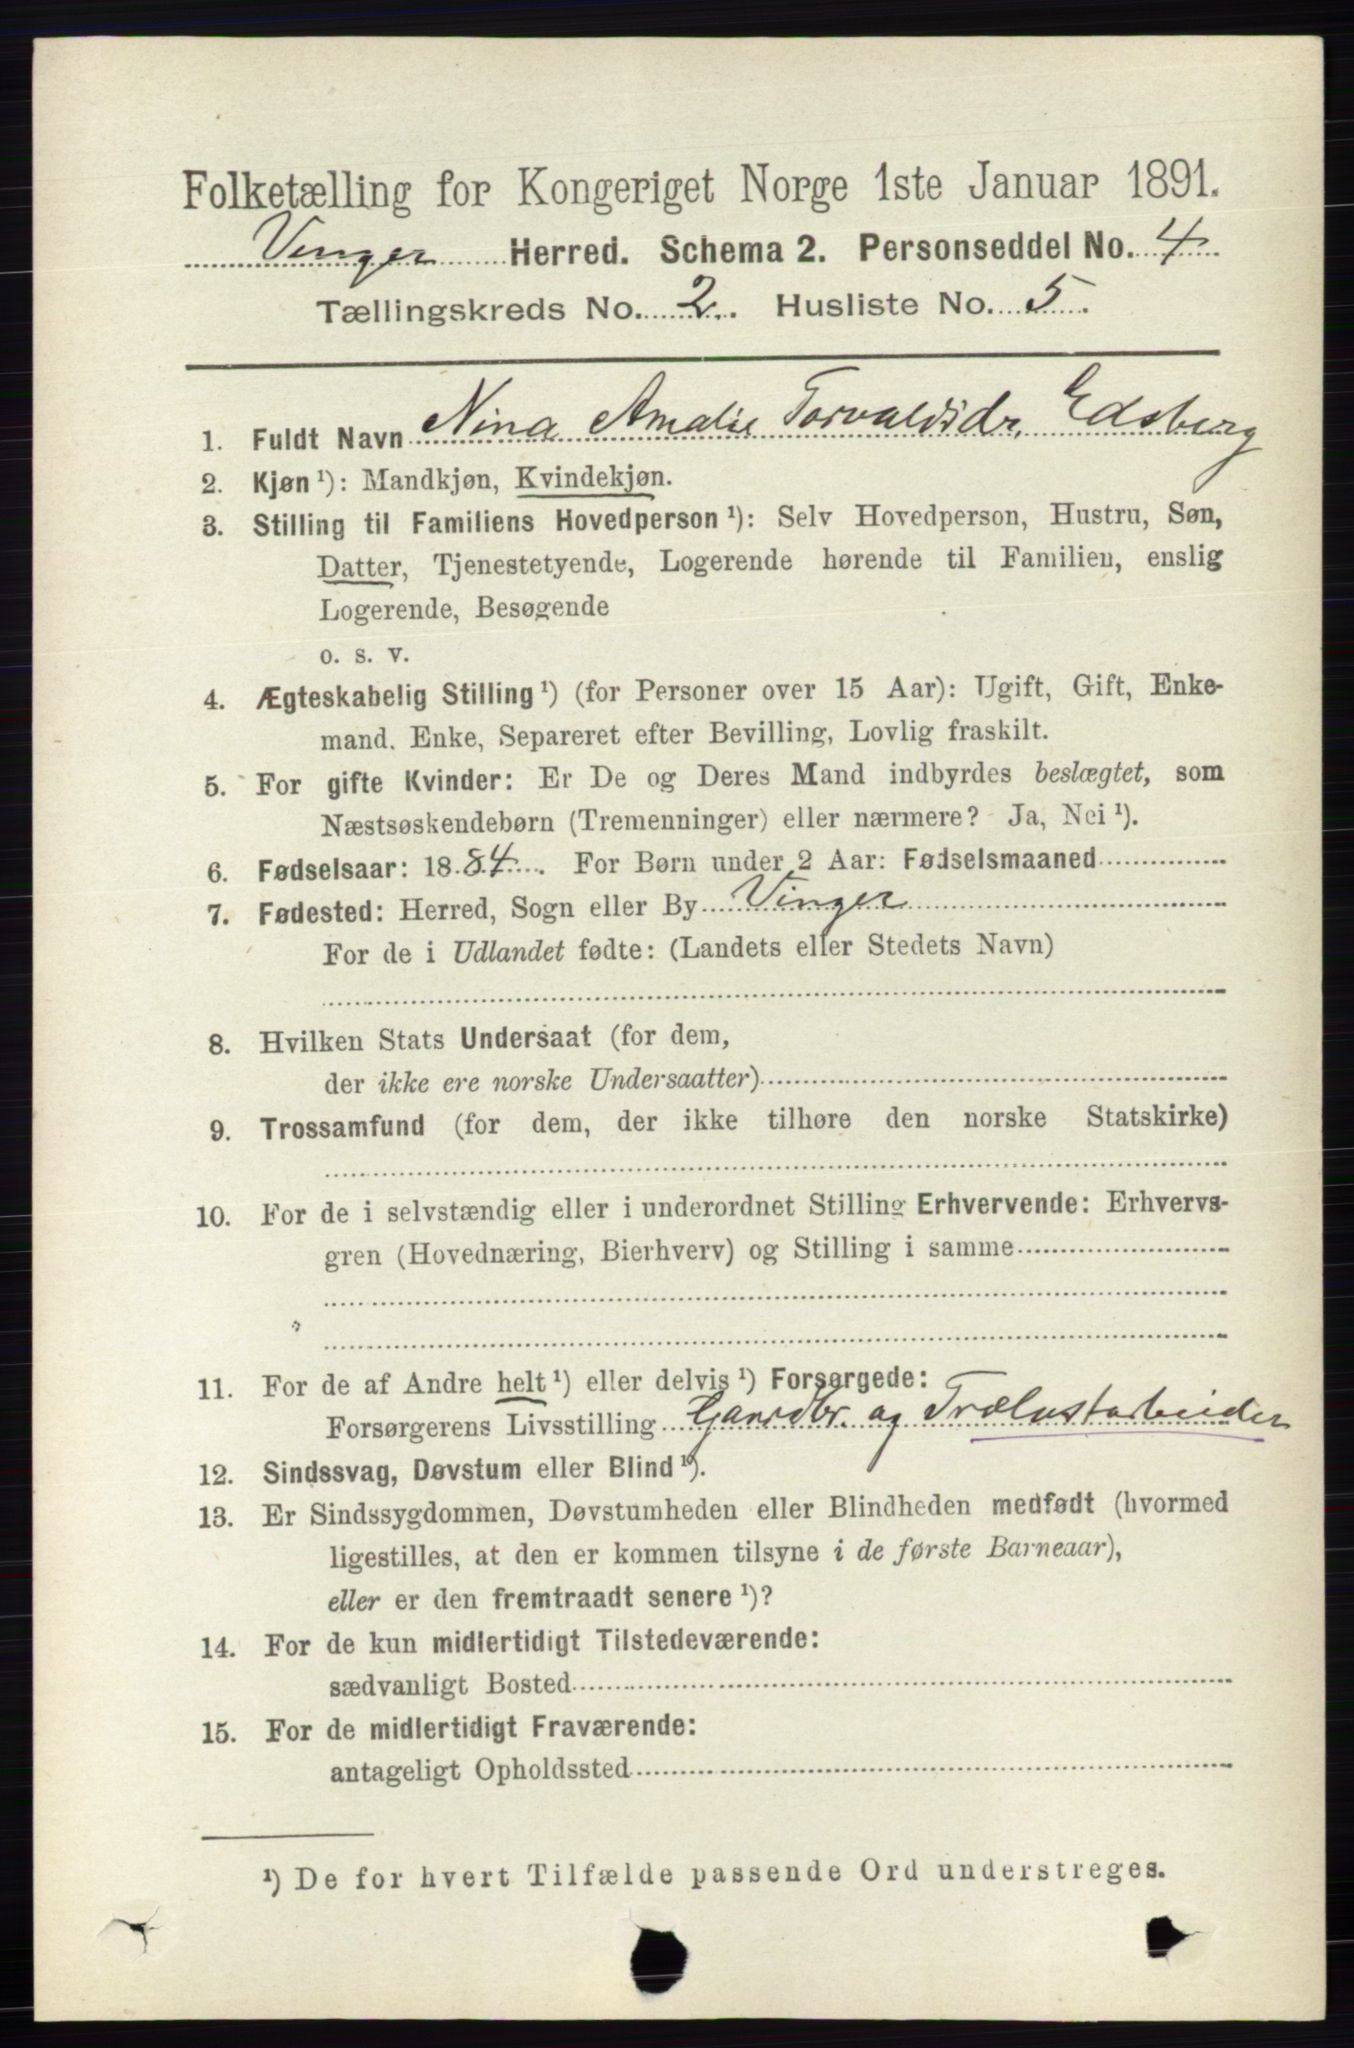 Folketælling for Kongeriget Norge 1ste Januar 1891.
Vinger Herred. Schema 2. Personseddel No. 4
Tællingskreds No. 2. Husliste No. 5.
1. Fuldt Navn Nina Amalie Torvaldsdr. Edsberg
2. Kjøn ¹): Mandkjøn, Kvindekjøn.
3. Stilling til Familiens Hovedperson ¹): Selv Hovedperson, Hustru, Søn,
Datter, Tjenestetyende, Logerende hørende til Familien, enslig
Logerende, Besøgende
o. s. v.
4. Ægteskabelig Stilling ¹) (for Personer over 15 Aar): Ugift, Gift, Enke-
mand. Enke, Separeret efter Bevilling, Lovlig fraskilt.
5. For gifte Kvinder: Er De og Deres Mand indbyrdes beslægtet, som
Næstsøskendebørn (Tremenninger) eller nærmere? Ja, Nei ¹).
6. Fødselsaar: 1884. For Børn under 2 Aar: Fødselsmaaned
7. Fødested: Herred, Sogn eller By Vinger
For de i Udlandet fødte: (Landets eller Stedets Navn)
8. Hvilken Stats Undersaat (for dem,
der ikke ere norske Undersaatter)
9. Trossamfund (for dem, der ikke tilhøre den norske Statskirke)
10. For de i selvstændig eller i underordnet Stilling Erhvervende: Erhvervs-
gren (Hovednæring, Bierhverv) og Stilling i samme
11. For de af Andre helt ¹) eller delvis ¹) Forsørgede:
Forsørgerens Livsstilling Gaardbr. og Trælastarbeider
12. Sindssvag, Døvstum eller Blind ¹).
13. Er Sindssygdommen, Døvstumheden eller Blindheden medfødt (hvormed
ligestilles, at den er kommen tilsyne i de første Barneaar),
eller er den fremtraadt senere ¹)?
14. For de kun midlertidigt Tilstedeværende:
sædvanligt Bosted
15. For de midlertidigt Fraværende:
antageligt Opholdssted
¹) De for hvert Tilfælde passende Ord understreges.